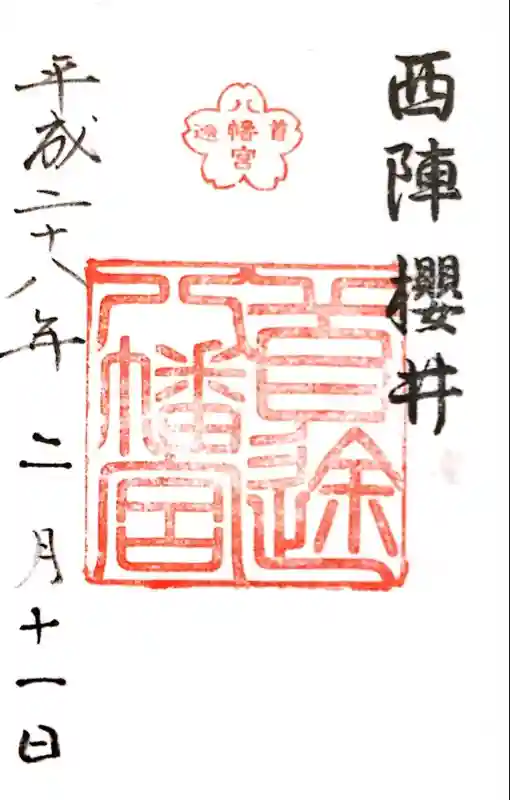 西陣 櫻井
首途
八幡宮
首途
八幡宮
平成二十八年 二月十一日